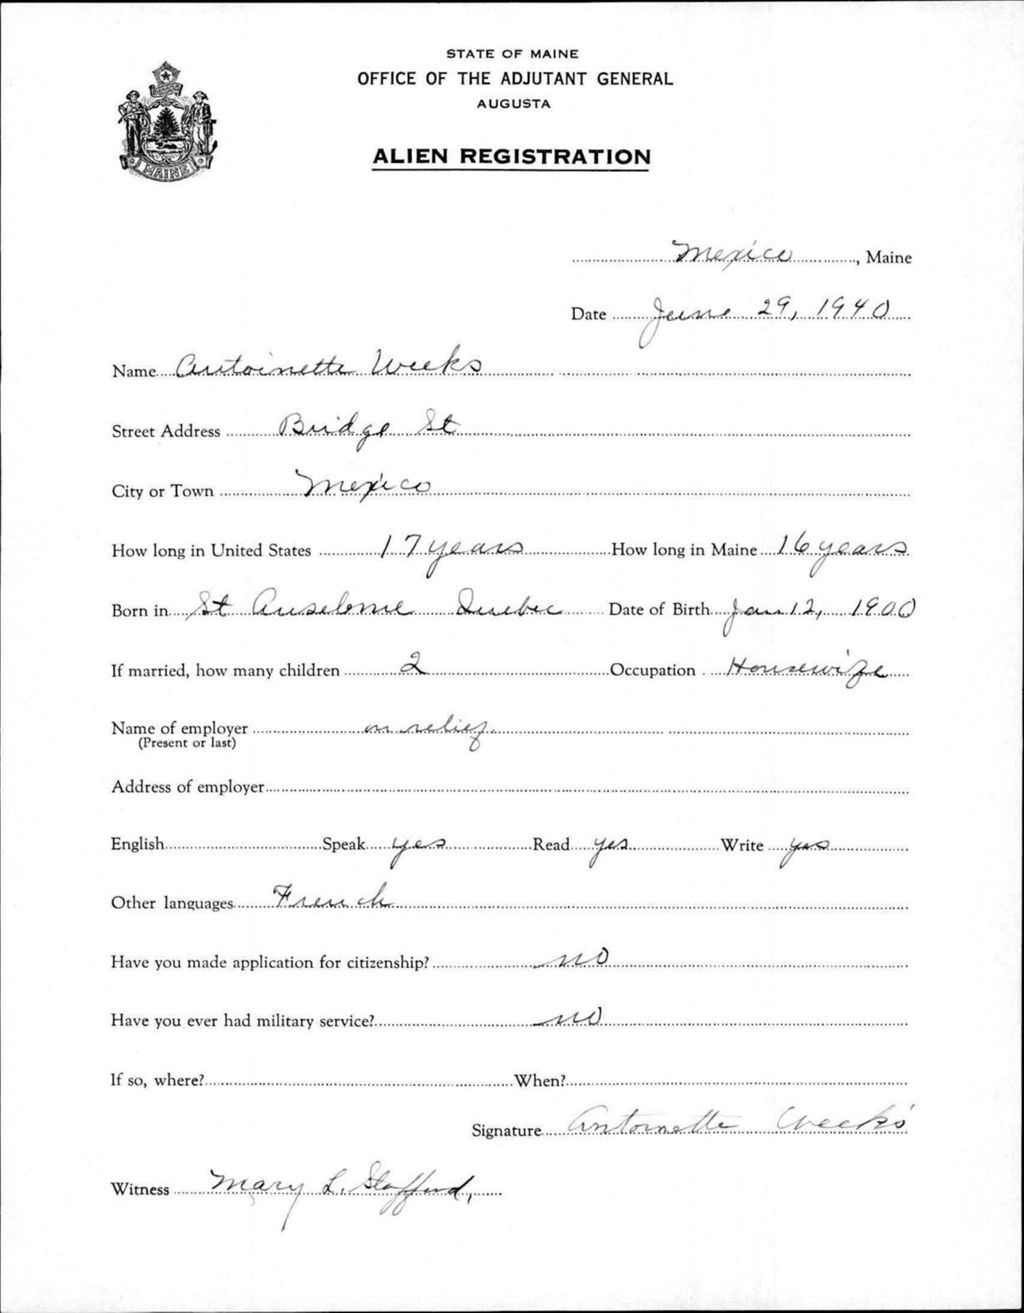 STATE OF MAINE
OFFICE OF THE ADJUTANT GENERAL
AUGUSTA
ALIEN REGISTRATION
MAINE
Mexico, Maine
Date June 29, 1940
Name Antoinette Weeks
Street Address Bridge St
City or Town Mexico
How long in United States 17 years How long in Maine 16 years
Born in St Anselme Quebec Date of Birth Jan 12, 1900
If married, how many children 2 Occupation Housewife
Name of employer on relief.
(Present or last)
Address of employer
English Speak yes Read yes Write yes
Other languages French
Have you made application for citizenship? no
Have you ever had military service? no
If so, where? When?
Signature Antoinette Weeks
Witness Mary L. Stafford,